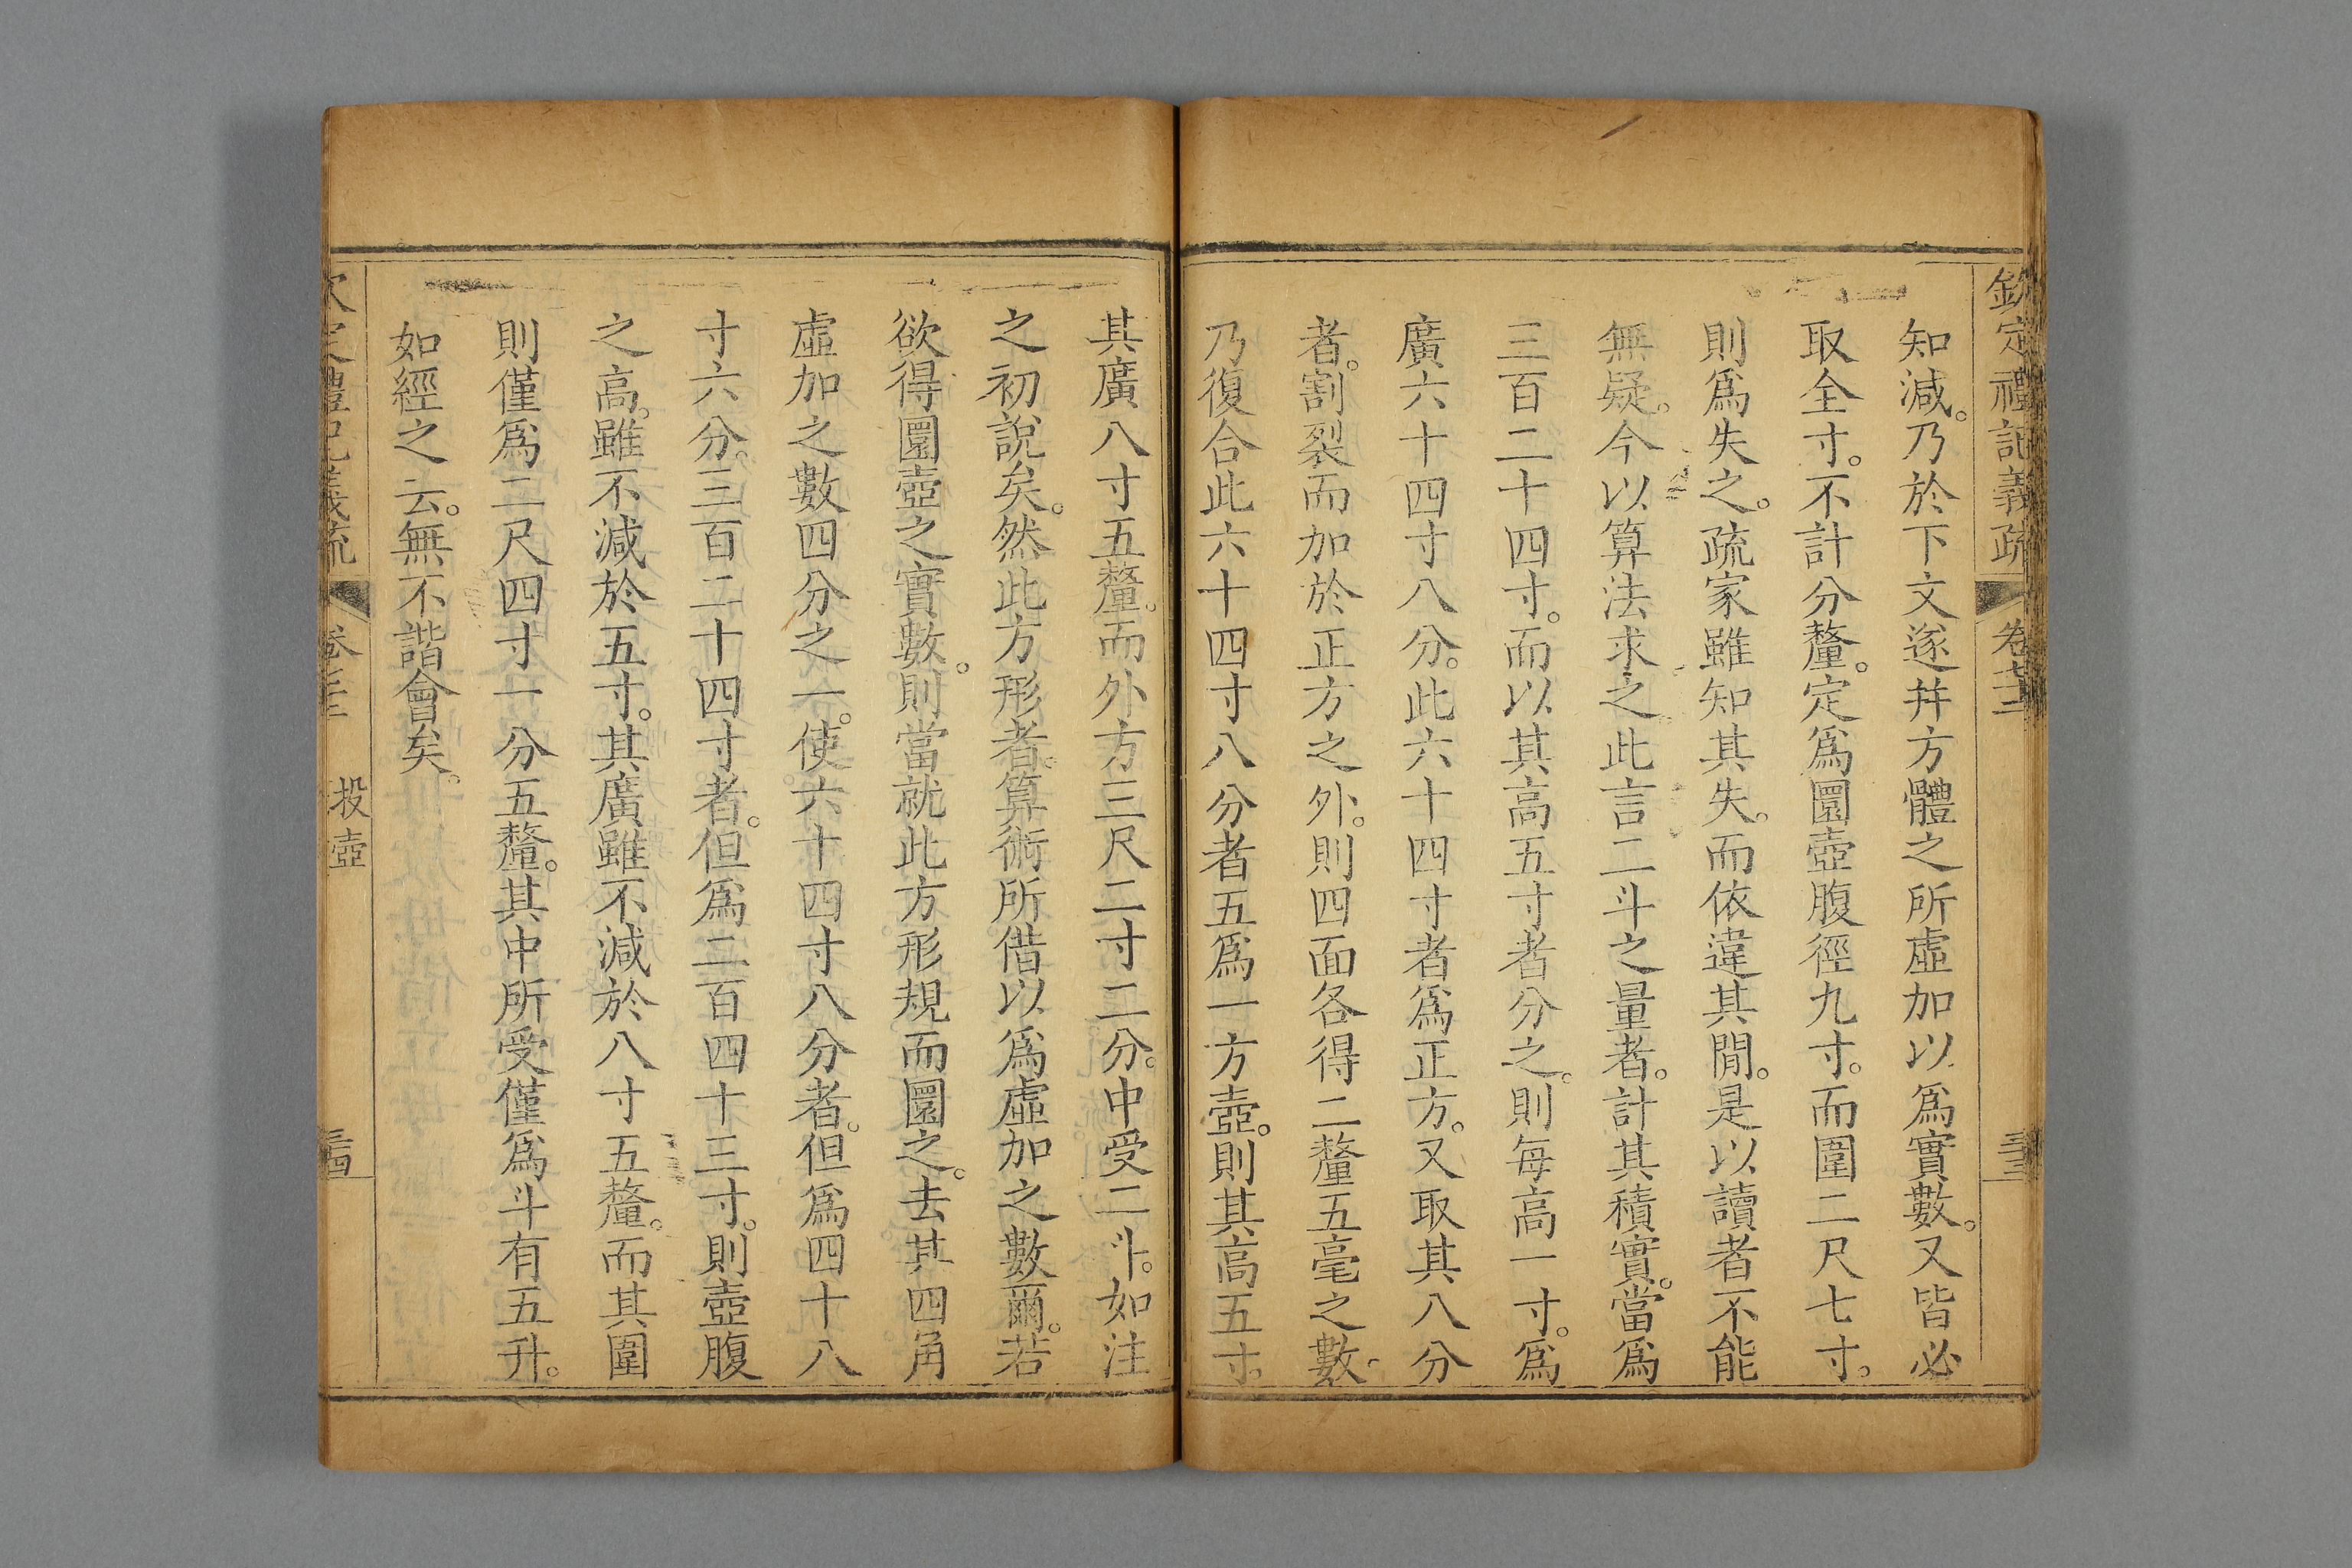 欽定禮記義疏 卷七十三 三十三
知減。乃於下文遂幷方體之所虛加以爲實數。又皆必
取全寸。不計分釐。定爲圜壺腹徑九寸。而圍二尺七寸。
則爲失之。疏家雖知其失。而依違其閒。是以讀者不能
無疑。今以算法求之。此言二斗之量者。計其積實。當爲
三百二十四寸。而以其高五寸者分之。則每高一寸。爲
廣六十四寸八分。此六十四寸者爲正方。又取其八分
者。割裂而加於正方之外。則四面各得二釐五毫之數。
乃復合此六十四寸八分者五爲一方壺。則其高五寸。
其廣八寸五釐。而外方三尺二寸二分。中受二斗。如注
之初說矣。然此方形者。算術所借以爲虛加之數爾。若
欲得圜壺之實數。則當就此方形規而圜之。去其四角
虛加之數四分之一。使六十四寸八分者。但爲四十八
寸六分。三百二十四寸者。但爲二百四十三寸。則壺腹
之高。雖不減於五寸。其廣雖不減於八寸五釐。而其圍
則僅爲二尺四寸一分五釐。其中所受僅爲斗有五升。
如經之云。無不諧會矣。
定禮記義疏 投壺 三十四